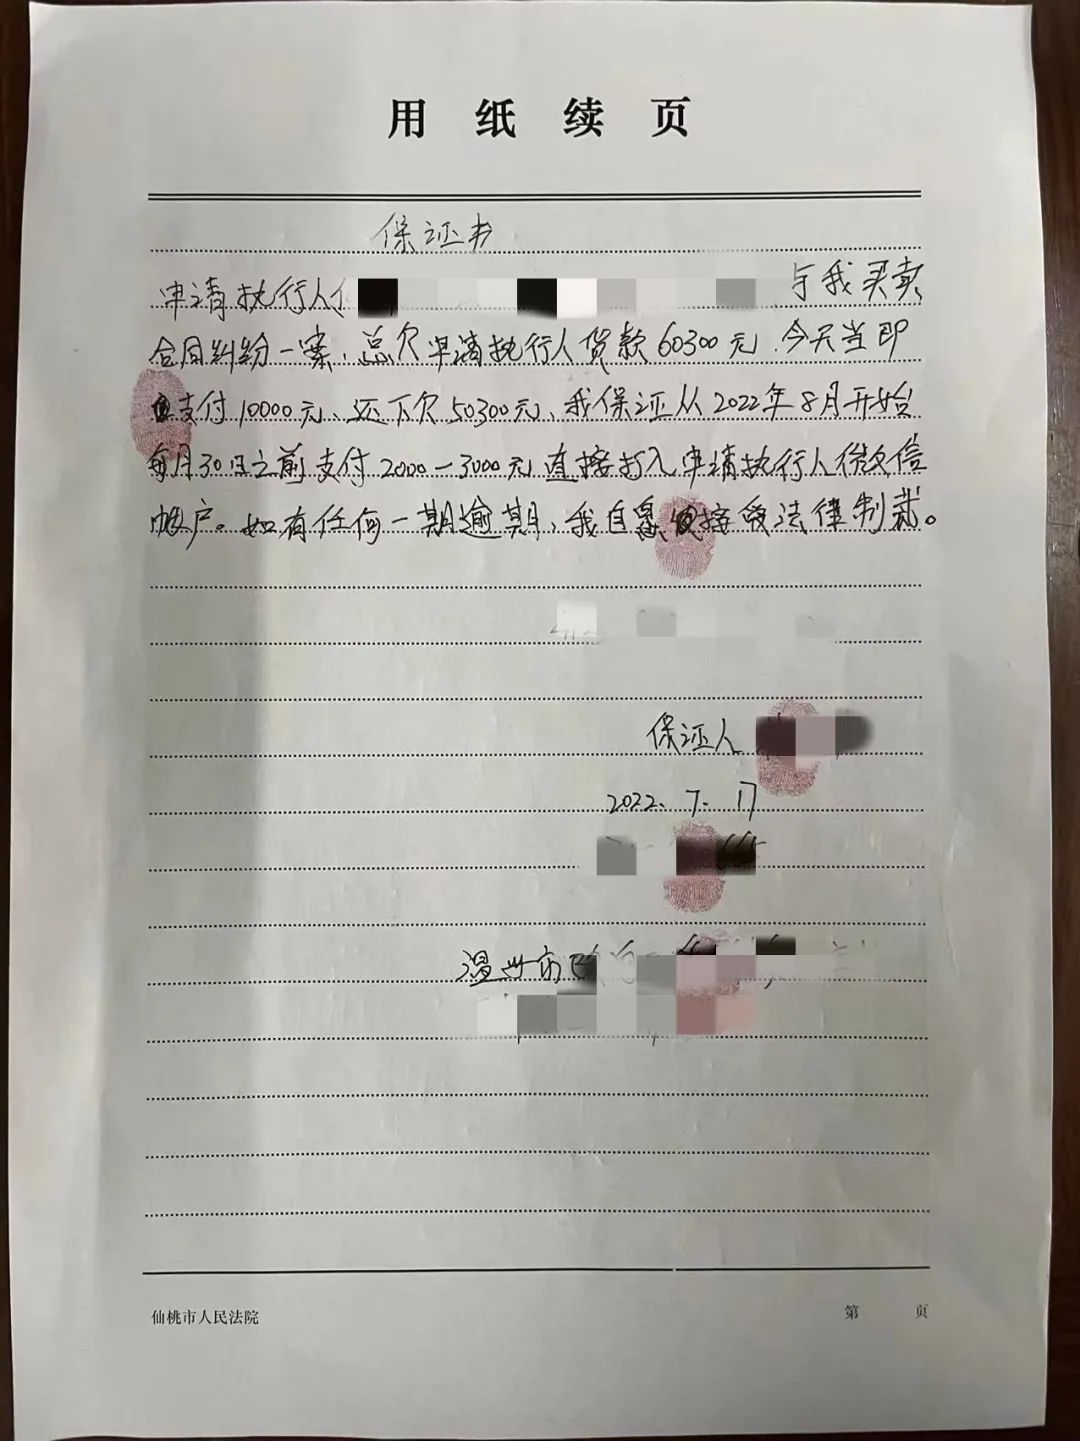 用纸续页
保证书
申请执行人 与我买卖
合同纠纷一案，总欠申请执行人货款60300元.今天当即
支付10000元、还下欠50300元、我保证从2022年8月开始
每月30日之前支付2000一3000元直接打入申请执行人微信
帐户。如有任何一期逾期，我自愿接受法律制裁。
保证人
2022.7.17
温州市
仙桃市人民法院
第 页